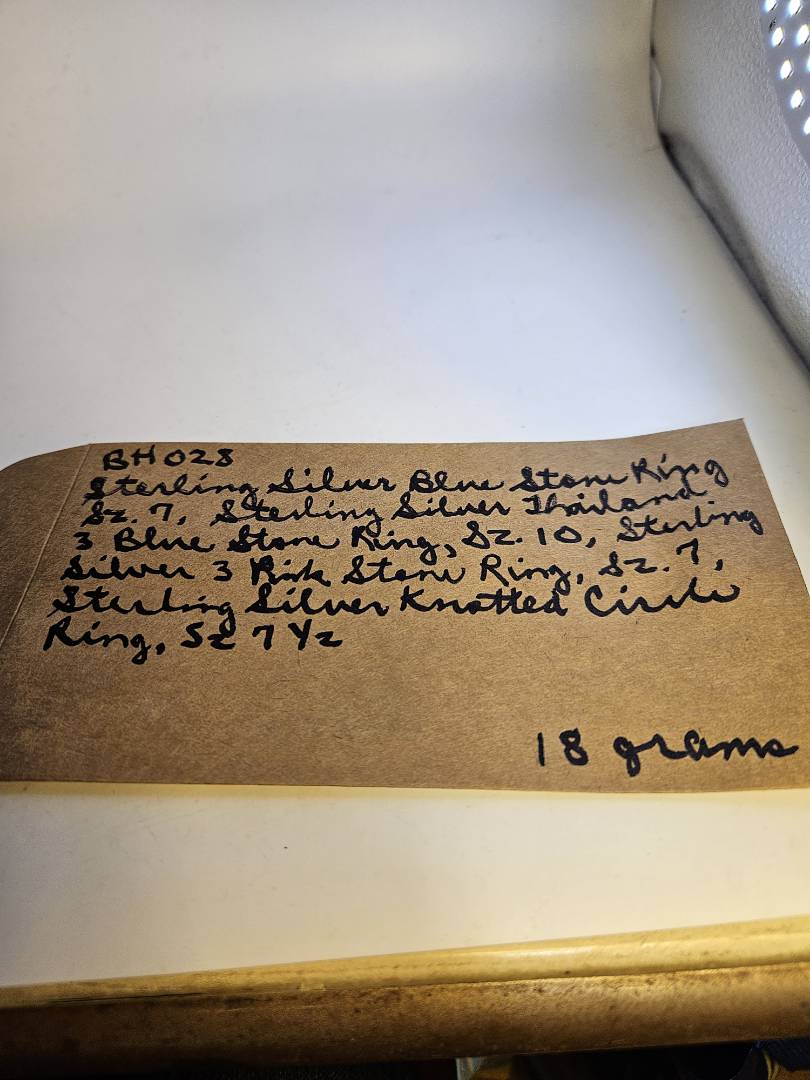 BH028
Sterling Silver Blue Stone Ring
Sz. 7, Sterling Silver Thailand
3 Blue Stone Ring, Sz. 10, Sterling
Silver 3 Pink Stone Ring, Sz. 7,
Sterling Silver Knotted Circle
Ring, Sz 7 1/2
18 grams